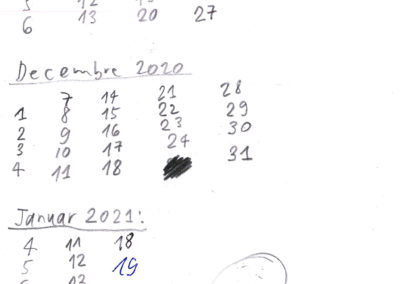 6 13 20 27
Decembre 2020
7 14 21 28
1 8 15 22 29
2 9 16 23 30
3 10 17 24 31
4 11 18
Januar 2021:
4 11 18
5 12 19